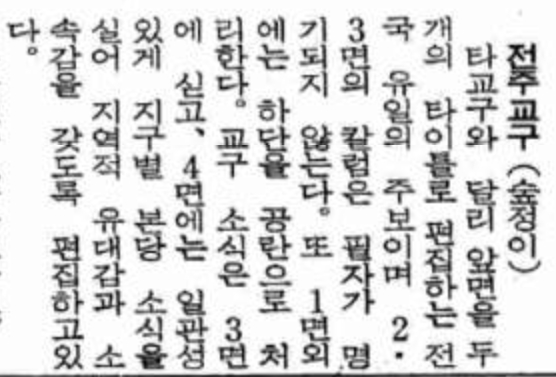 전주교구 (숲정이)
타교구와 달리 앞면을 두
개의 타이틀로 편집하는 전
국 유일의 주보이며 2·
3면의 칼럼은 필자가 명
기되지 않는다. 또 1면외
에는 하단을 공란으로 처
리한다. 교구 소식은 3면
에 싣고, 4면에는 일관성
있게 지구별 본당 소식을
실어 지역적 유대감과 소
속감을 갖도록 편집하고있
다.